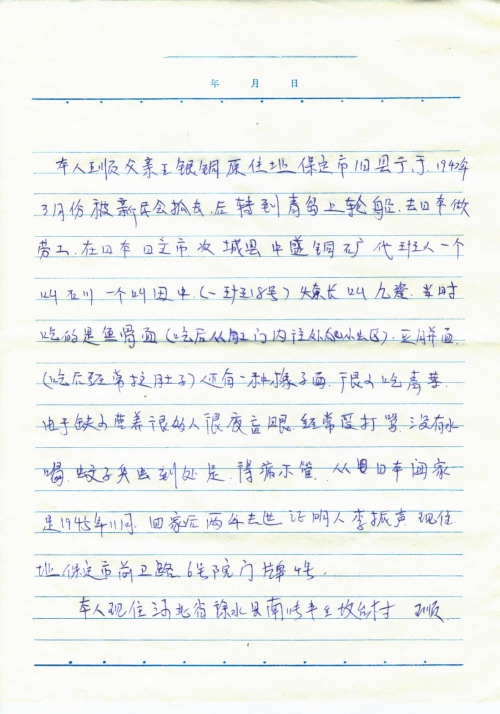 年 月 日
本人王顺父亲王银铜原住址保定市旧县于,于,1942年
3月份被新民会抓去,后转到青岛上轮船,去日本做
劳工,在日本日立市茨城县中 铜矿代班人一个
叫石川一个叫田中,(一班18号)
吃的是鱼骨面(吃后从肛门内往外 ),豆饼面,
(吃后经常拉肚子)还有一种橡子面,很少吃青菜,
由于缺少营养很多人很夜盲眼,经常受打骂,没有水
喝,蚊子臭虫到处是,得病不管,从日本回家
是1945年11月,回家后两年去世,证明人李振声,现住
址保定市前卫路6号院门牌4号,
本人现住河北省徐水县南 丰 坟台村 王顺